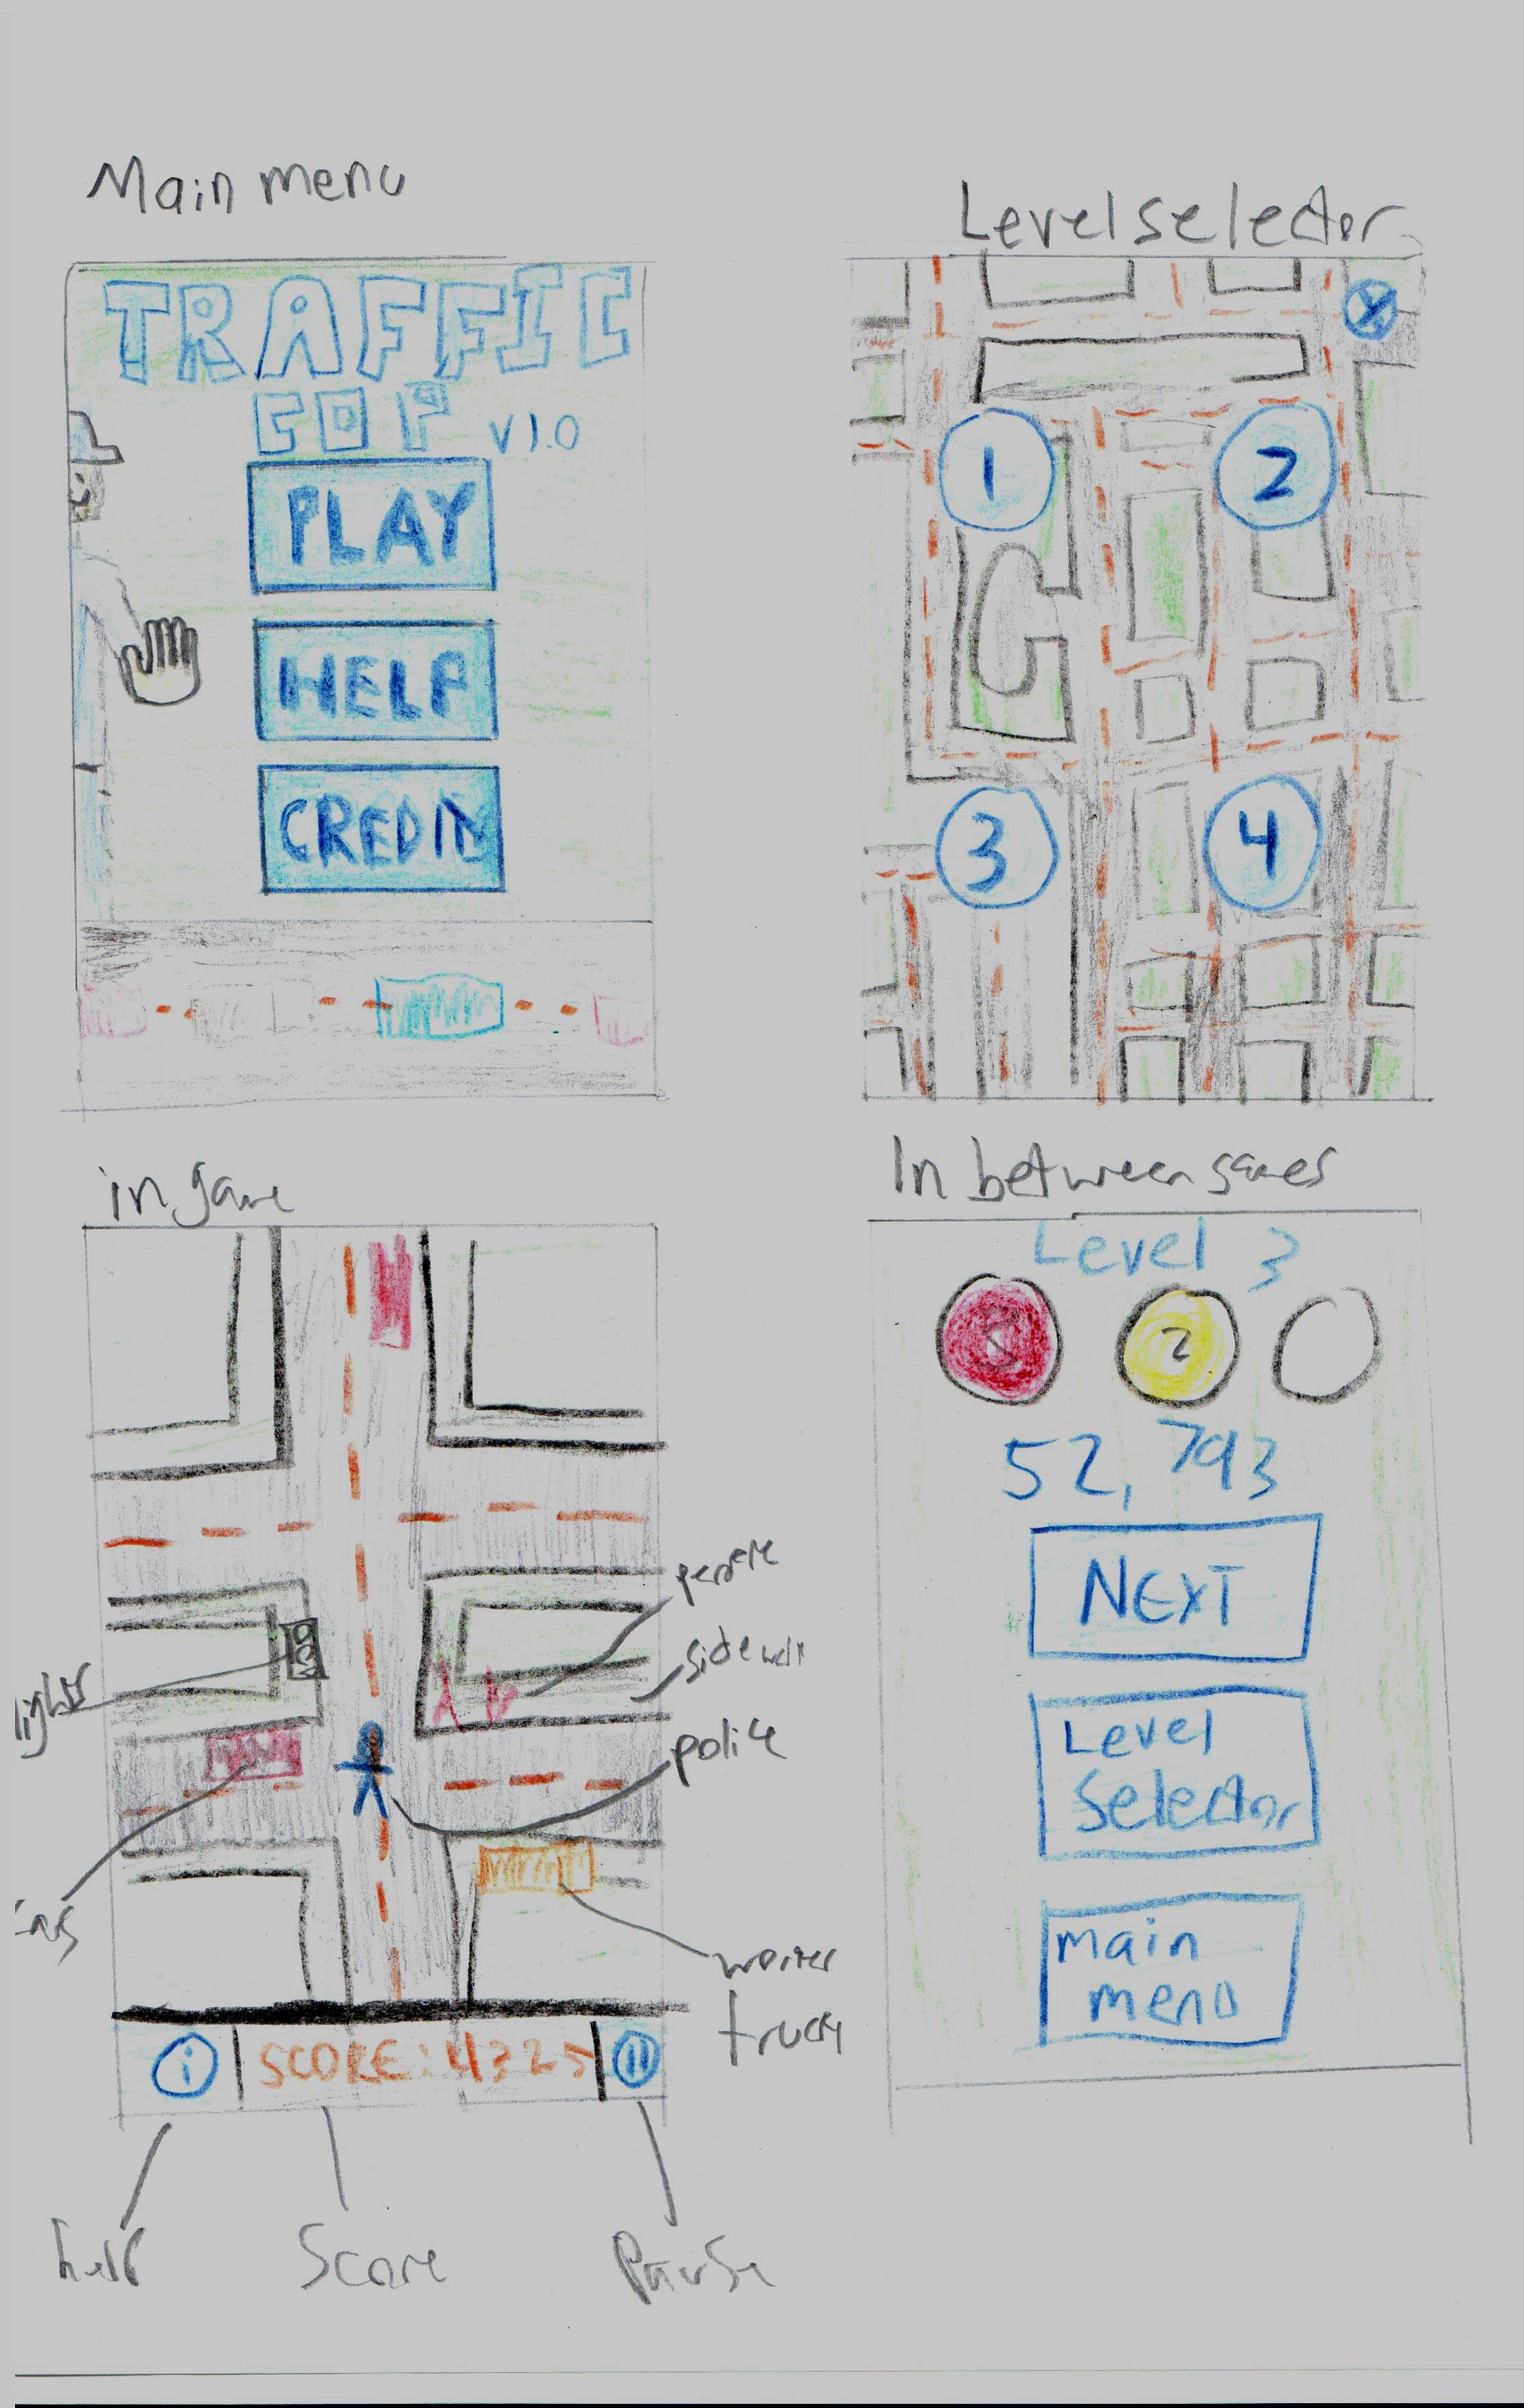 Main menu
TRAFFIC
COP v1.0
PLAY
HELP
CREDIT
Level selector
X
1
2
3
4
in game
lights
people
sidewalk
police
worker
truck
i
SCORE: 4325
help
Score
Pause
In between games
Level 3
2
52,793
NEXT
Level
Selector
main
menu